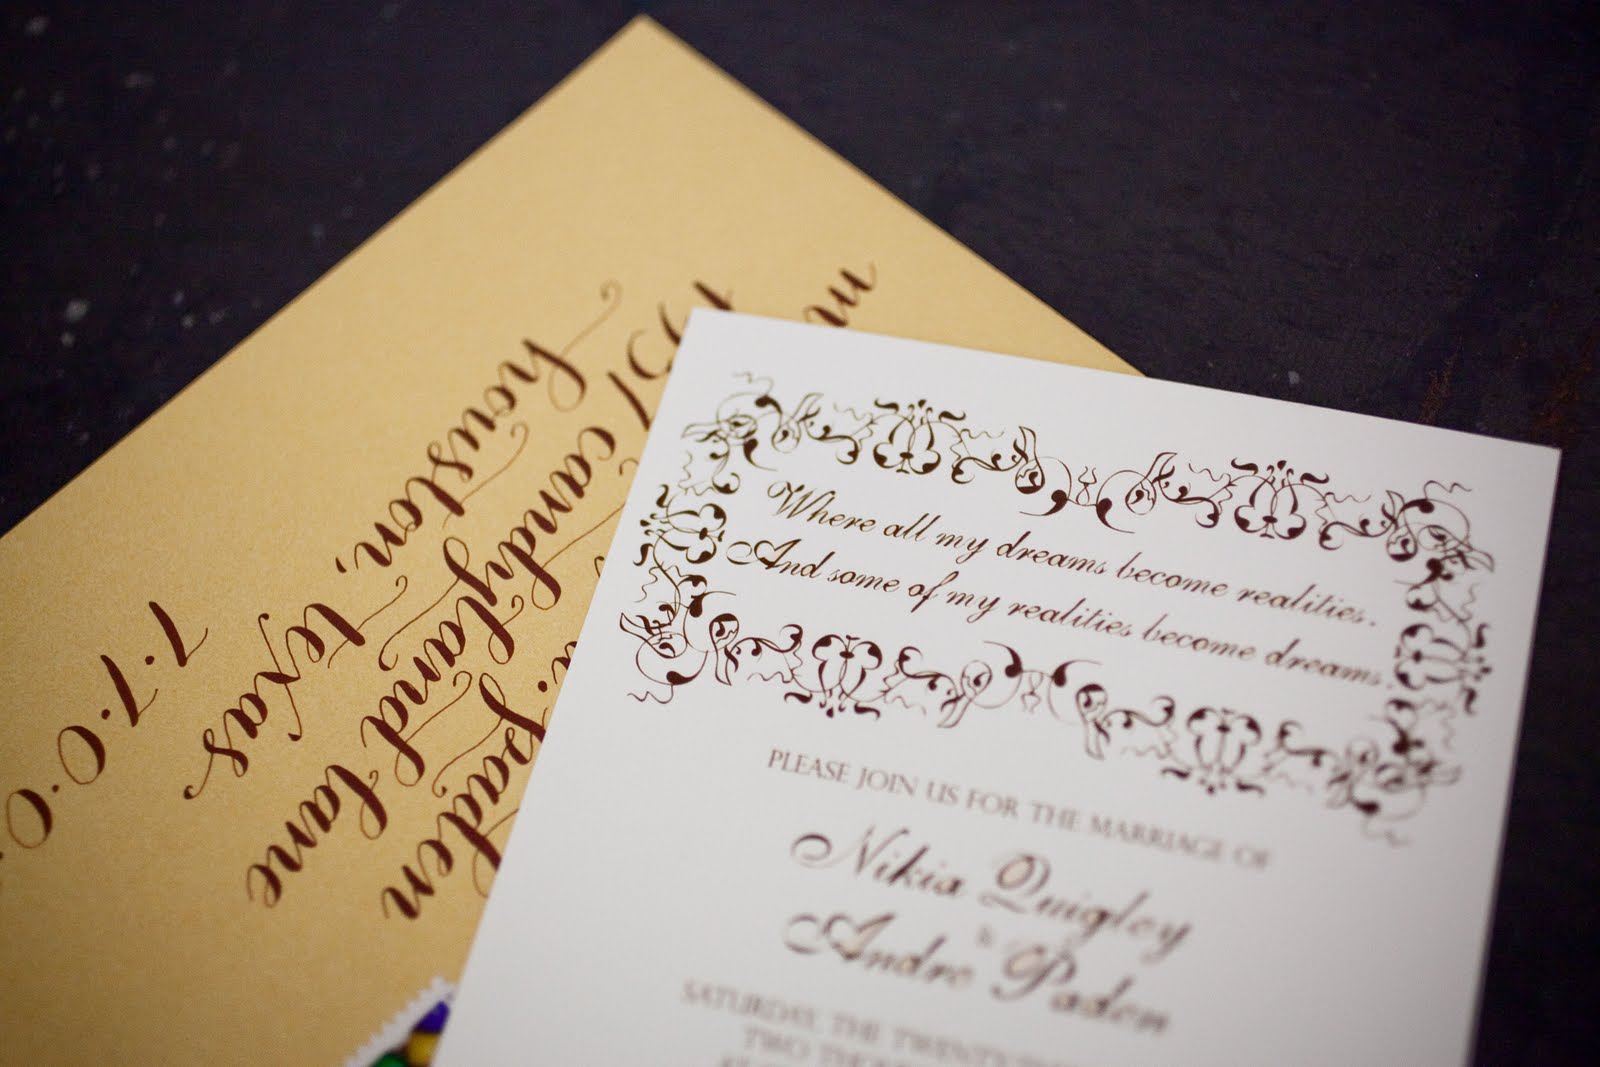 Where all my dreams become realities.
And some of my realities become dreams.
PLEASE JOIN US FOR THE MARRIAGE OF
Nikia Quigley
&
Andre Paden
SATURDAY, THE
TWO
paden
candyland lane
houston, texas
7·7·0·0·